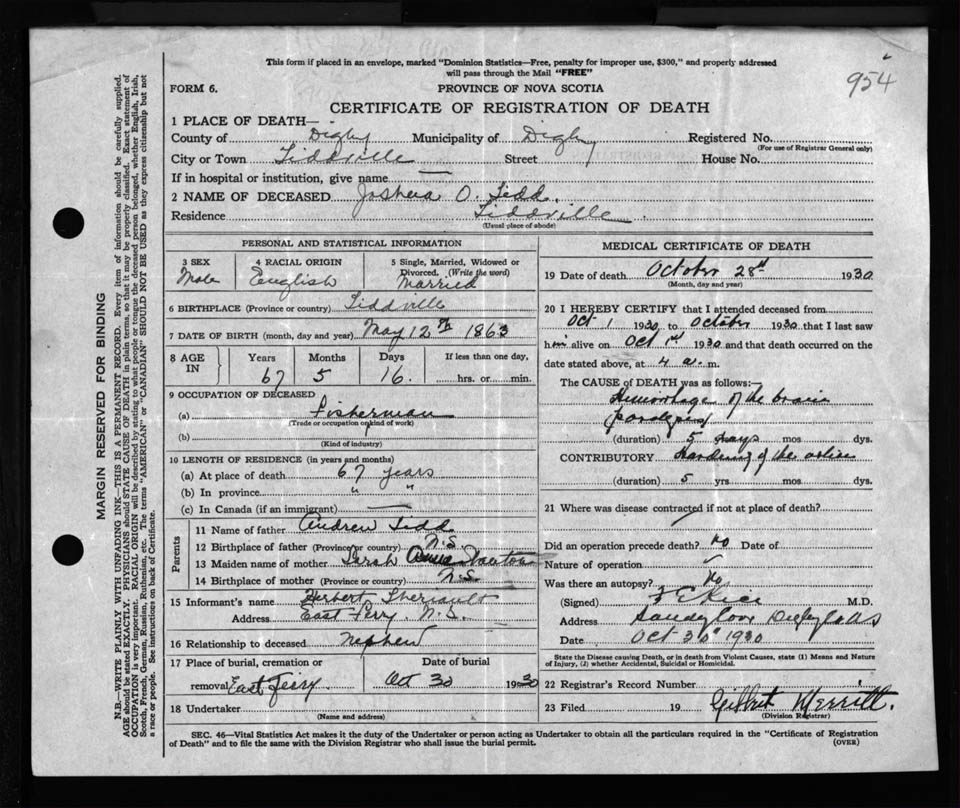 This form if placed in an envelope, marked "Dominion Statistics—Free, penalty for improper use, $300," and properly addressed
will pass through the Mail "FREE"
954
FORM 6.
PROVINCE OF NOVA SCOTIA
CERTIFICATE OF REGISTRATION OF DEATH
1 PLACE OF DEATH—
County of Digby Municipality of Digby Registered No.
(For use of Registrar General only)
City or Town Tiddville Street House No.
If in hospital or institution, give name —
2 NAME OF DECEASED Joshua O. Tidd.
Residence Tiddville
(Usual place of abode)
PERSONAL AND STATISTICAL INFORMATION
3 SEX 4 RACIAL ORIGIN 5 Single, Married, Widowed or
Divorced. (Write the word)
Male English Married
6 BIRTHPLACE (Province or country) Tiddville
7 DATE OF BIRTH (month, day and year) May 12th 1863
8 AGE IN Years Months Days If less than one day,
67 5 16. hrs. or min.
9 OCCUPATION OF DECEASED
(a) Fisherman
(Trade or occupation or kind of work)
(b)
(Kind of industry)
10 LENGTH OF RESIDENCE (in years and months)
(a) At place of death 67 years
(b) In province " "
(c) In Canada (if an immigrant) —
Parents
11 Name of father Andrew Tidd
12 Birthplace of father (Province or country) N.S.
13 Maiden name of mother Sarah
14 Birthplace of mother (Province or country) N.S.
15 Informant's name Herbert Theriault
Address East Ferry. N.S.
16 Relationship to deceased Nephew
17 Place of burial, cremation or Date of burial
removal East Ferry. Oct 30 1930
18 Undertaker
(Name and address)
MEDICAL CERTIFICATE OF DEATH
19 Date of death October 28th 1930
(Month, day and year)
20 I HEREBY CERTIFY that I attended deceased from
Oct 1 1930 to October 1930 that I last saw
him alive on Oct 1st 1930 and that death occurred on the
date stated above, at 4 a. m.
The CAUSE of DEATH was as follows:—
Hemorrhage of the brain
paralysis
(duration) 5 days mos dys.
CONTRIBUTORY Hardening of the arteries
(duration) 5 yrs mos dys.
21 Where was disease contracted if not at place of death?
Did an operation precede death? No Date of
Nature of operation
Was there an autopsy? No
(Signed) F E Rice M.D.
Address Sandy Cove Digby Co NS
Date Oct 30th 1930
State the Disease causing Death, or in death from Violent Causes, state (1) Means and Nature
of Injury, (2) whether Accidental, Suicidal or Homicidal.
22 Registrar's Record Number
23 Filed 19 Gilbert Merritt.
(Division Registrar)
SEC. 46—Vital Statistics Act makes it the duty of the Undertaker or person acting as Undertaker to obtain all the particulars required in the "Certificate of Registration
of Death" and to file the same with the Division Registrar who shall issue the burial permit.
(OVER)
MARGIN RESERVED FOR BINDING
N.B.—WRITE PLAINLY WITH UNFADING INK—THIS IS A PERMANENT RECORD. Every item of information should be carefully supplied.
AGE should be stated EXACTLY. PHYSICIANS should STATE CAUSE OF DEATH in plain terms, so that it may be properly classified. Exact statement of
OCCUPATION is very important. RACIAL ORIGIN will be described by stating to what people or tongue the deceased person belonged, whether English, Irish,
Scotch, French, German, Russian, Ruthenian, etc. The terms "AMERICAN" or "CANADIAN" SHOULD NOT BE USED as they express citizenship but not
a race or people. See instructions on back of Certificate.